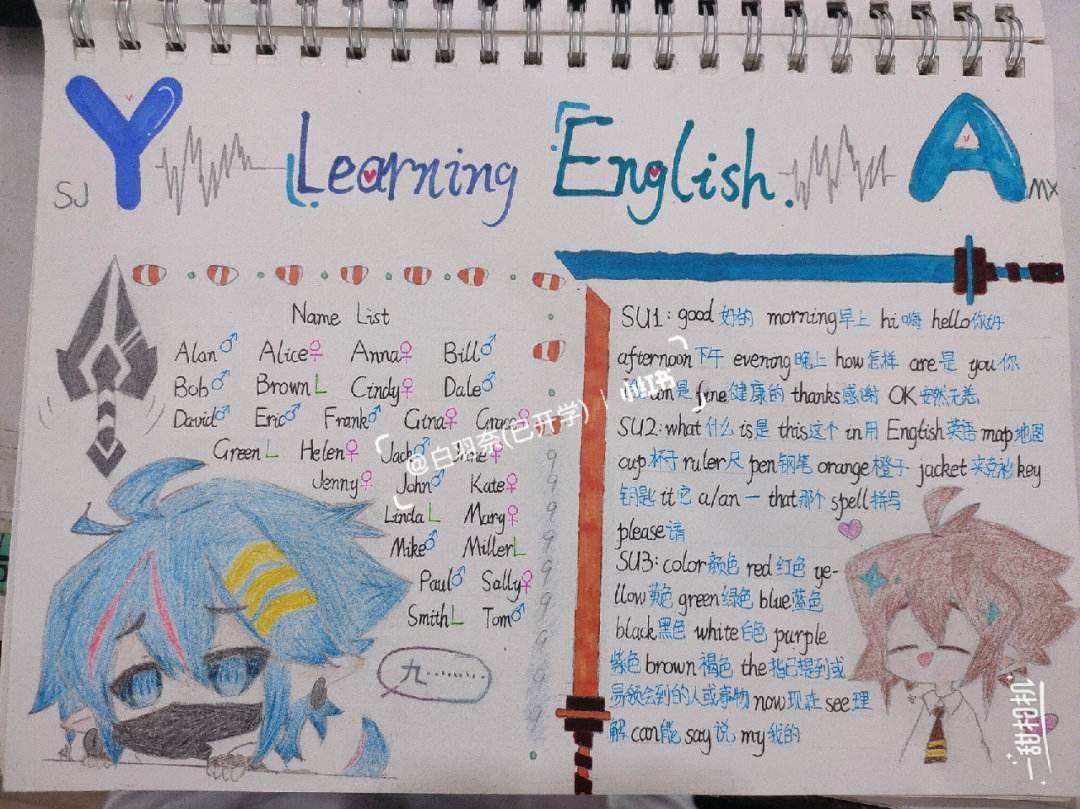 Y Learning English. A
SJ
MX
Name List
Alan♂ Alice♀ Anna♀ Bill♂
Bob♂ Brown L Cindy♀ Dale♂
David♂ Eric♂ Frank♂ Gina♀ Grace♀
Green L Helen♀ Jack♂ Jane♀
Jenny♀ John♂ Kate♀
Linda L Mary♀
Mike♂ Miller L
Paul♂ Sally♀
Smith L Tom♂
九········
SU1: good 好的 morning 早上 hi 嗨 hello 你好
afternoon 下午 evening 晚上 how 怎样 are 是 you 你
是 fine 健康的 thanks 感谢 OK 安然无恙
SU2: what 什么 is 是 this 这个 in 用 English 英语 map 地图
cup 杯子 ruler 尺 pen 钢笔 orange 橙子 jacket 夹克衫 key
钥匙 it 它 a/an 一 that 那个 spell 拼写
please 请
SU3: color 颜色 red 红色 ye-
llow 黄色 green 绿色 blue 蓝色
black 黑色 white 白色 purple
紫色 brown 褐色 the 指已提到或
易领会到的人或事物 now 现在 see 理
解 can 能 say 说 my 我的
@白羽奈(已开学) | 小红书
甜扣扣机